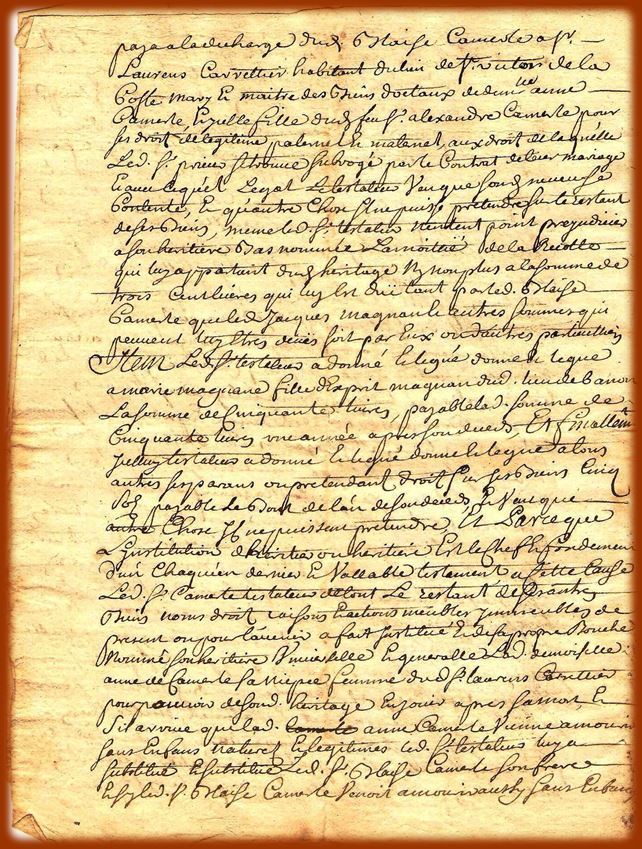 paya a la decharge dud. Sr Blaise Camerle a Sr.
Laurens Carrettier habitant du lieu de de la
Coste mary et maitre des biens doctaux de dlle anne
Camerle icelle fille dud. feu Sr. alexandre Camerle pour
ses droit de legitime paternel et maternel, aux droit de laquelle
Led. Sr. prieur se trouve subrogé par le Contrat de leur mariage
et avec lequel Legat Le testateur Veut que sond. neveu soit
Contente, et qu'autre Chose il ne puisse pretendre sur le restant
de ses biens, meme led. Sr. testateur n'entent point prejudicier
a son heritiere bas nommée La moitié de la Recolte
qui luy appartient dud. heritage Ny non plus a la somme de
trois Cent livres qui luy Est düe tant par led. Blaise
Camerle que led. Jacques magnan et autres sommes qui
peuvent luy Etre deües soit par Eux ou d'autres particuliers
Item Led. Sr. testateur a donné et legué donne et legue
a marie magnane fille d'Esprit magnan dud. lieu de banon
La somme de Cinquante livres, payable lad. somme de
Cinquante livres une année apres son deceds, Et finallemt
Icelluy testateur a donné et legué donne et legue a tous
autres ses parans ou pretendant droit sur ses biens Cinq
Sols payable le bout de l'an de son deceds, et Veut que
autre Chose Ils ne puissent pretendre, Et Parce que
L'institution d'heritier ou heritiere Est le Chef et fondement
d'un Chaquun dernier et Vallable testement a Cette Cause
Led. Sr. Camerle testateur de tout Le restant de ses autres
biens noms droit raisons et actions meubles Immeubles de
present ou pour l'avenir a fait Institué et de sa propre Bouche
Nommé son heritiere Universelle et generalle Lad. demoiselle
anne de Camerle sa Niepce femme dud. Sr. laurens Carettier
pour pouvoir de sond. heritage En jouir apres sa mort, Et
Si arrive que lad. anne Camerle Vienne a mourir
sans Enfans naturel et legitimes led. Sr. testateur luy a
substitué et substitue Led. Sr. Blaise Camerle son frere
Et sy led. Sr. Blaise Camerle Venoit a mourir aussy sans Enfans